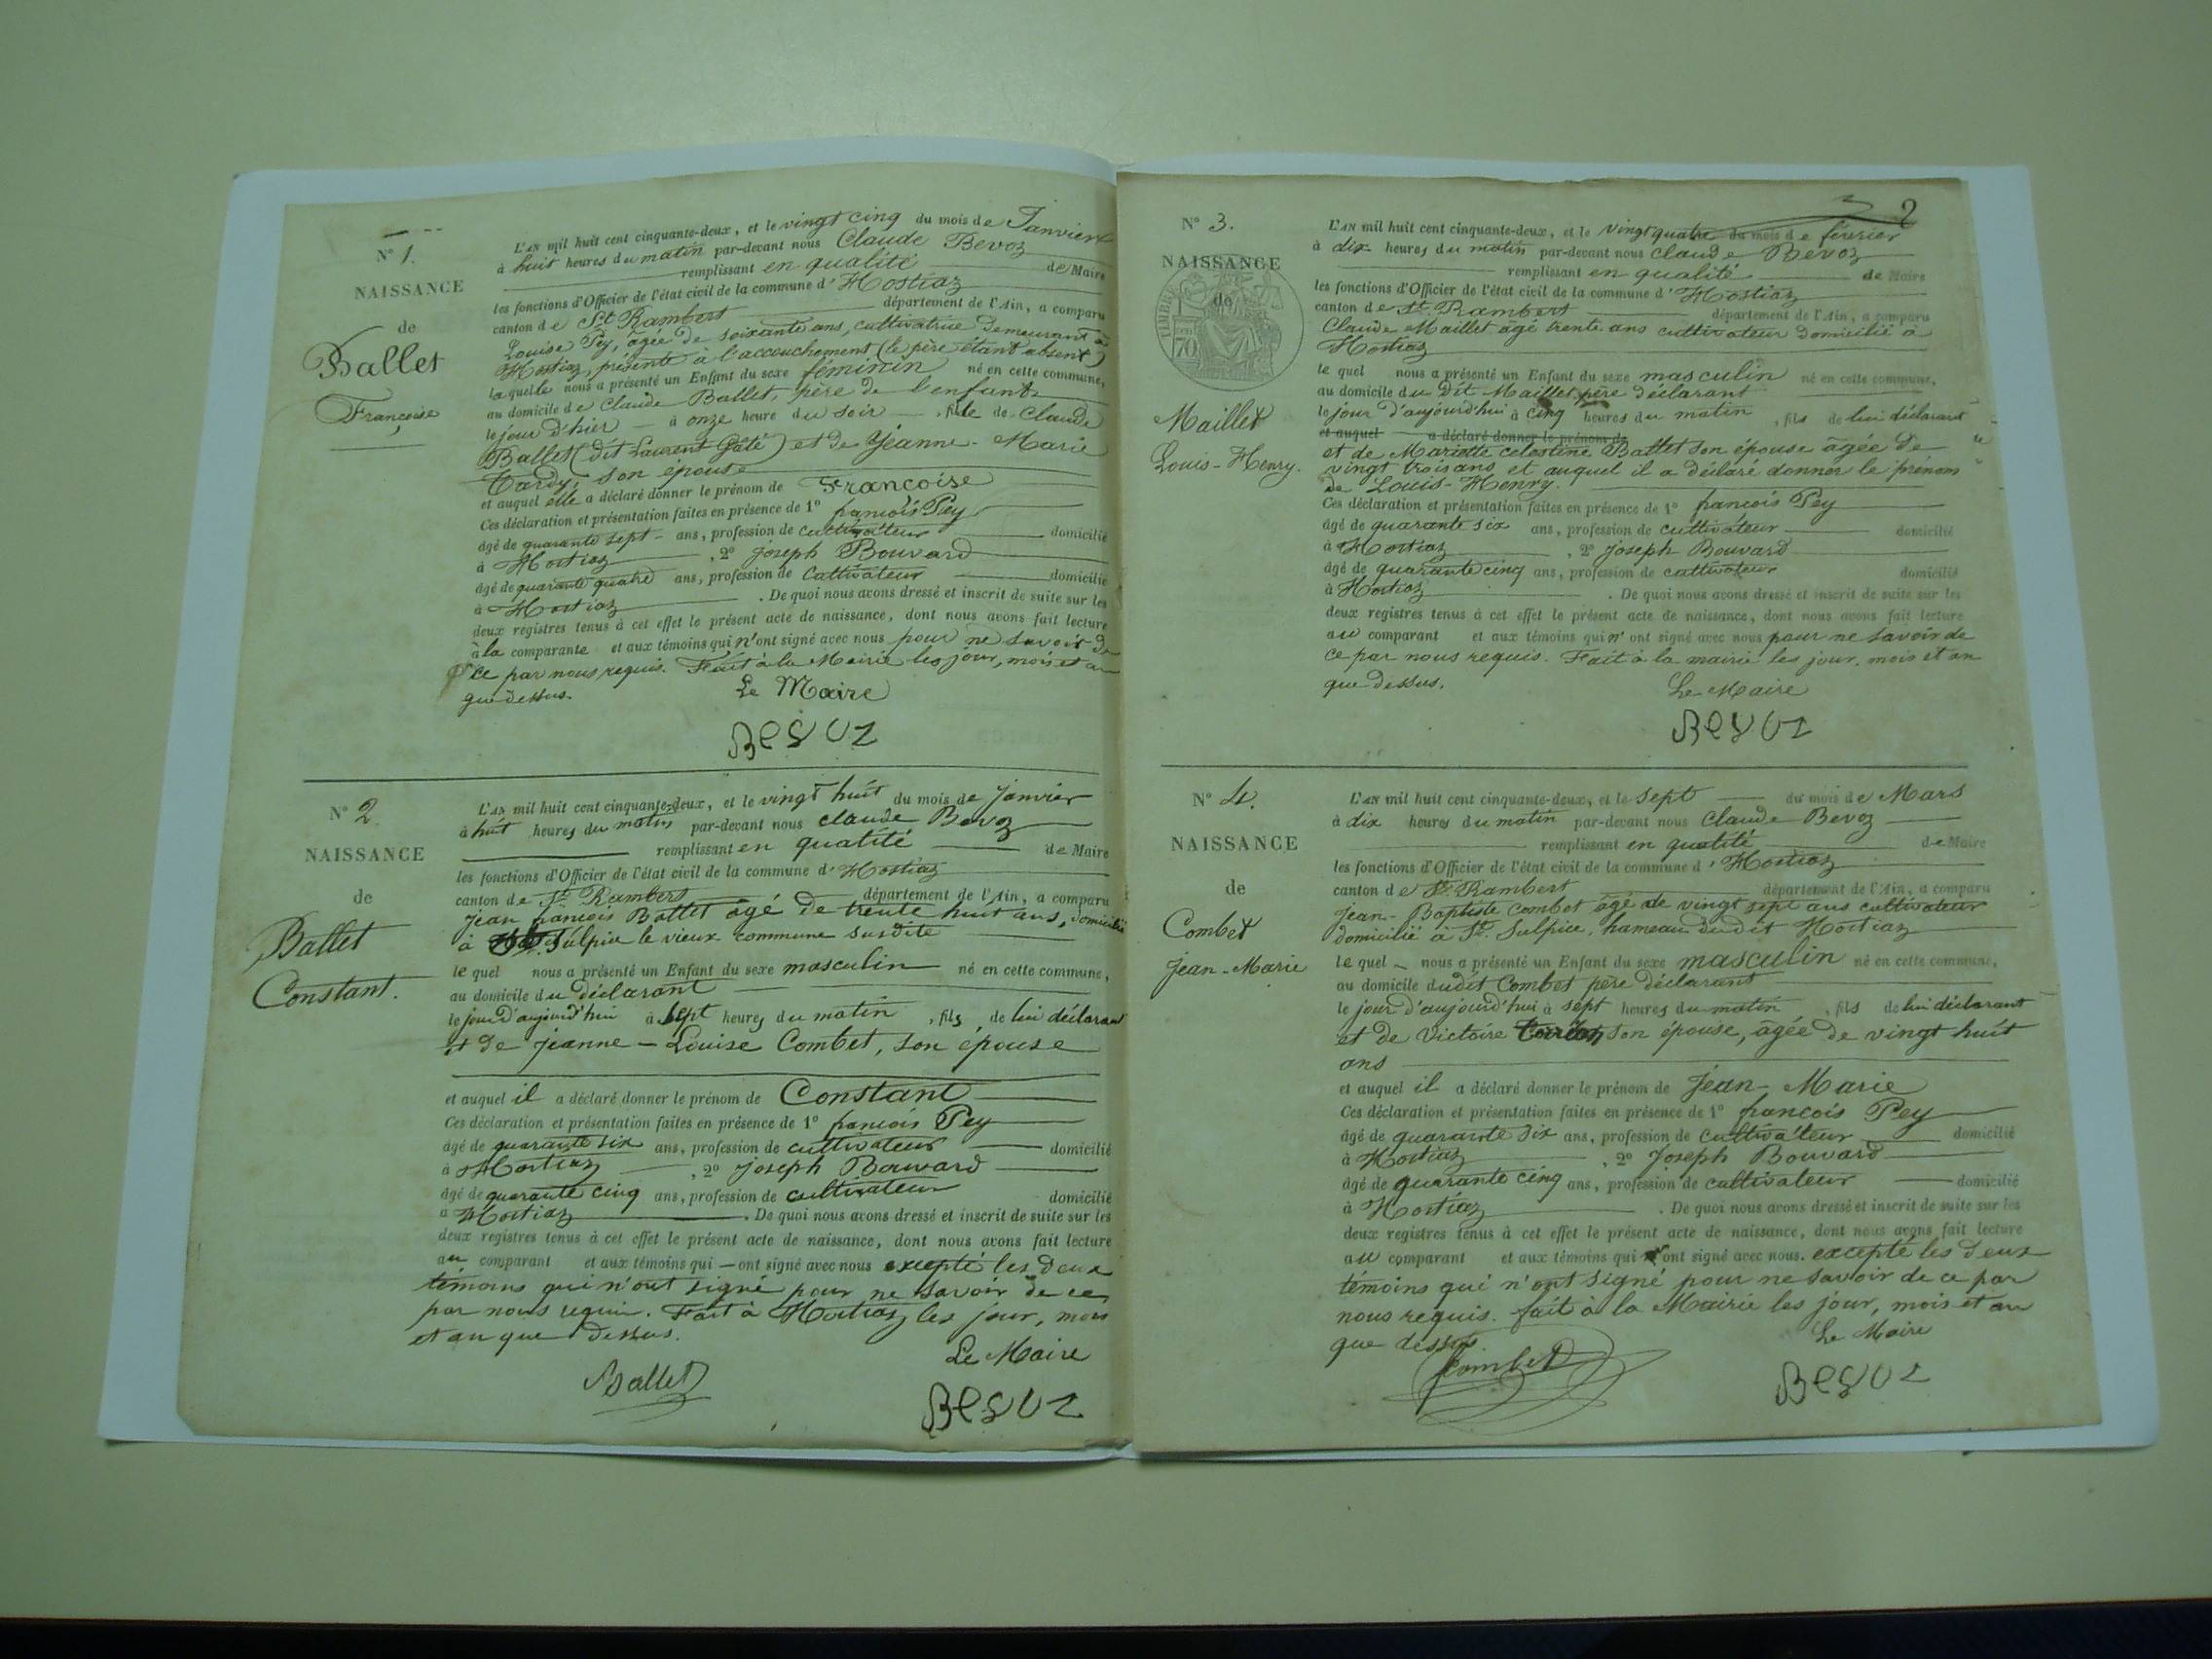 N° 1.
NAISSANCE
de
Ballet
Françoise
L'AN mil huit cent cinquante-deux, et le vingt cinq du mois de Janvier
à huit heures du matin par-devant nous Claude Bevoz
remplissant en qualité de Maire
les fonctions d'Officier de l'état civil de la commune d'Hostiaz
canton de St Rambert département de l'Ain, a comparu
Louise Pey, agée de soixante ans, cultivatrice demeurant à
Hostiaz, présente à l'accouchement (le père étant absent)
laquelle nous a présenté un Enfant du sexe féminin né en cette commune,
au domicile de Claude Ballet, père de l'enfant
le jour d'hier à onze heure du soir, fille de Claude
Ballet (dit Laurent Gâté) et de Jeanne-Marie
Tardy, son épouse
et auquel elle a déclaré donner le prénom de Françoise
Ces déclaration et présentation faites en présence de 1° françois Pey
âgé de quarante sept ans, profession de cultivateur domicilié
à Hostiaz, 2° Joseph Bouvard
âgé de quarante quatre ans, profession de cultivateur domicilié
à Hostiaz. De quoi nous avons dressé et inscrit de suite sur les
deux registres tenus à cet effet le présent acte de naissance, dont nous avons fait lecture
à la comparante et aux témoins qui n'ont signé avec nous pour ne savoir de
ce par nous requis. Fait à la Mairie les jour, mois et an
que dessus.
Le Maire
BEVOZ
N° 2.
NAISSANCE
de
Ballet
Constant.
L'AN mil huit cent cinquante-deux, et le vingt huit du mois de Janvier
à huit heures du matin par-devant nous Claude Bevoz
remplissant en qualité de Maire
les fonctions d'Officier de l'état civil de la commune d'Hostiaz
canton de St Rambert département de l'Ain, a comparu
Jean françois Ballet âgé de trente huit ans, domicilié
à St. Sulpice le vieux commune susdite
le quel nous a présenté un Enfant du sexe masculin né en cette commune,
au domicile du déclarant
le jour d'aujourd'hui à sept heures du matin, fils de lui déclarant
et de Jeanne-Louise Combet, son épouse
et auquel il a déclaré donner le prénom de Constant
Ces déclaration et présentation faites en présence de 1° françois Pey
âgé de quarante six ans, profession de cultivateur domicilié
à Hostiaz, 2° Joseph Bouvard
âgé de quarante cinq ans, profession de cultivateur domicilié
à Hostiaz. De quoi nous avons dressé et inscrit de suite sur les
deux registres tenus à cet effet le présent acte de naissance, dont nous avons fait lecture
au comparant et aux témoins qui ont signé avec nous excepté les deux
témoins qui n'ont signé pour ne savoir de ce
par nous requis. Fait à Hostiaz les jour, mois
et an que dessus.
Le Maire
Ballet
BEVOZ
2
N° 3.
NAISSANCE
de
TIMBRE
70
Maillet
Louis-Henry.
L'AN mil huit cent cinquante-deux, et le vingt quatre du mois de février
à dix heures du matin par-devant nous Claude Bevoz
remplissant en qualité de Maire
les fonctions d'Officier de l'état civil de la commune d'Hostiaz
canton de St. Rambert département de l'Ain, a comparu
Claude Maillet âgé trente ans cultivateur domicilié à
Hostiaz
le quel nous a présenté un Enfant du sexe masculin né en cette commune,
au domicile du dit Maillet père déclarant
le jour d'aujourd'hui à cinq heures du matin, fils de lui déclarant
et auquel a déclaré donner le prénom de
et de Mariette celestine Ballet son épouse âgée de
vingt trois ans et auquel il a déclaré donner le prénom
de Louis-Henry.
Ces déclaration et présentation faites en présence de 1° françois Pey
âgé de quarante six ans, profession de cultivateur domicilié
à Hostiaz, 2° Joseph Bouvard
âgé de quarante cinq ans, profession de cultivateur domicilié
à Hostiaz. De quoi nous avons dressé et inscrit de suite sur les
deux registres tenus à cet effet le présent acte de naissance, dont nous avons fait lecture
au comparant et aux témoins qui n'ont signé avec nous pour ne savoir de
ce par nous requis. Fait à la mairie les jour, mois et an
que dessus.
Le Maire
BEVOZ
N° 4.
NAISSANCE
de
Combet
Jean-Marie
L'AN mil huit cent cinquante-deux, et le sept du mois de Mars
à dix heures du matin par-devant nous Claude Bevoz
remplissant en qualité de Maire
les fonctions d'Officier de l'état civil de la commune d'Hostiaz
canton de St. Rambert département de l'Ain, a comparu
Jean-Baptiste Combet âgé de vingt sept ans cultivateur
domicilié à St. Sulpice, hameau dudit Hostiaz
le quel nous a présenté un Enfant du sexe masculin né en cette commune,
au domicile dudit Combet père déclarant
le jour d'aujourd'hui à sept heures du matin, fils de lui déclarant
et de Victoire son épouse, agée de vingt huit
ans
et auquel il a déclaré donner le prénom de Jean-Marie
Ces déclaration et présentation faites en présence de 1° françois Pey
âgé de quarante six ans, profession de cultivateur domicilié
à Hostiaz, 2° Joseph Bouvard
âgé de quarante cinq ans, profession de cultivateur domicilié
à Hostiaz. De quoi nous avons dressé et inscrit de suite sur les
deux registres tenus à cet effet le présent acte de naissance, dont nous avons fait lecture
au comparant et aux témoins qui ont signé avec nous. excepté les deux
témoins qui n'ont signé pour ne savoir de ce par
nous requis. fait à la Mairie les jour, mois et an
que dessus.
Le Maire
Combet
BEVOZ